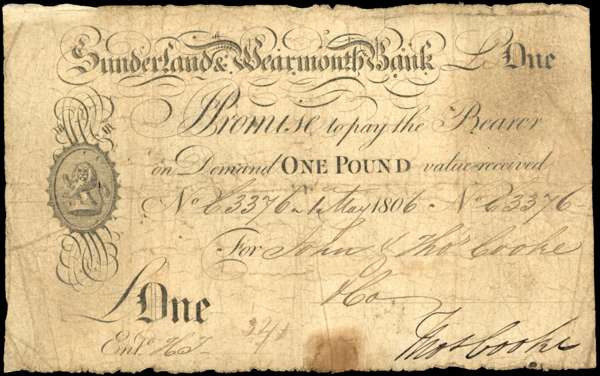 Sunderland & Wearmouth Bank £ One
I Promise to pay the Bearer
on Demand ONE POUND value received
No C3376 1 May 1806 No C3376
For John & Thos Cooke
& Co
£ One
Entd
Thos Cooke